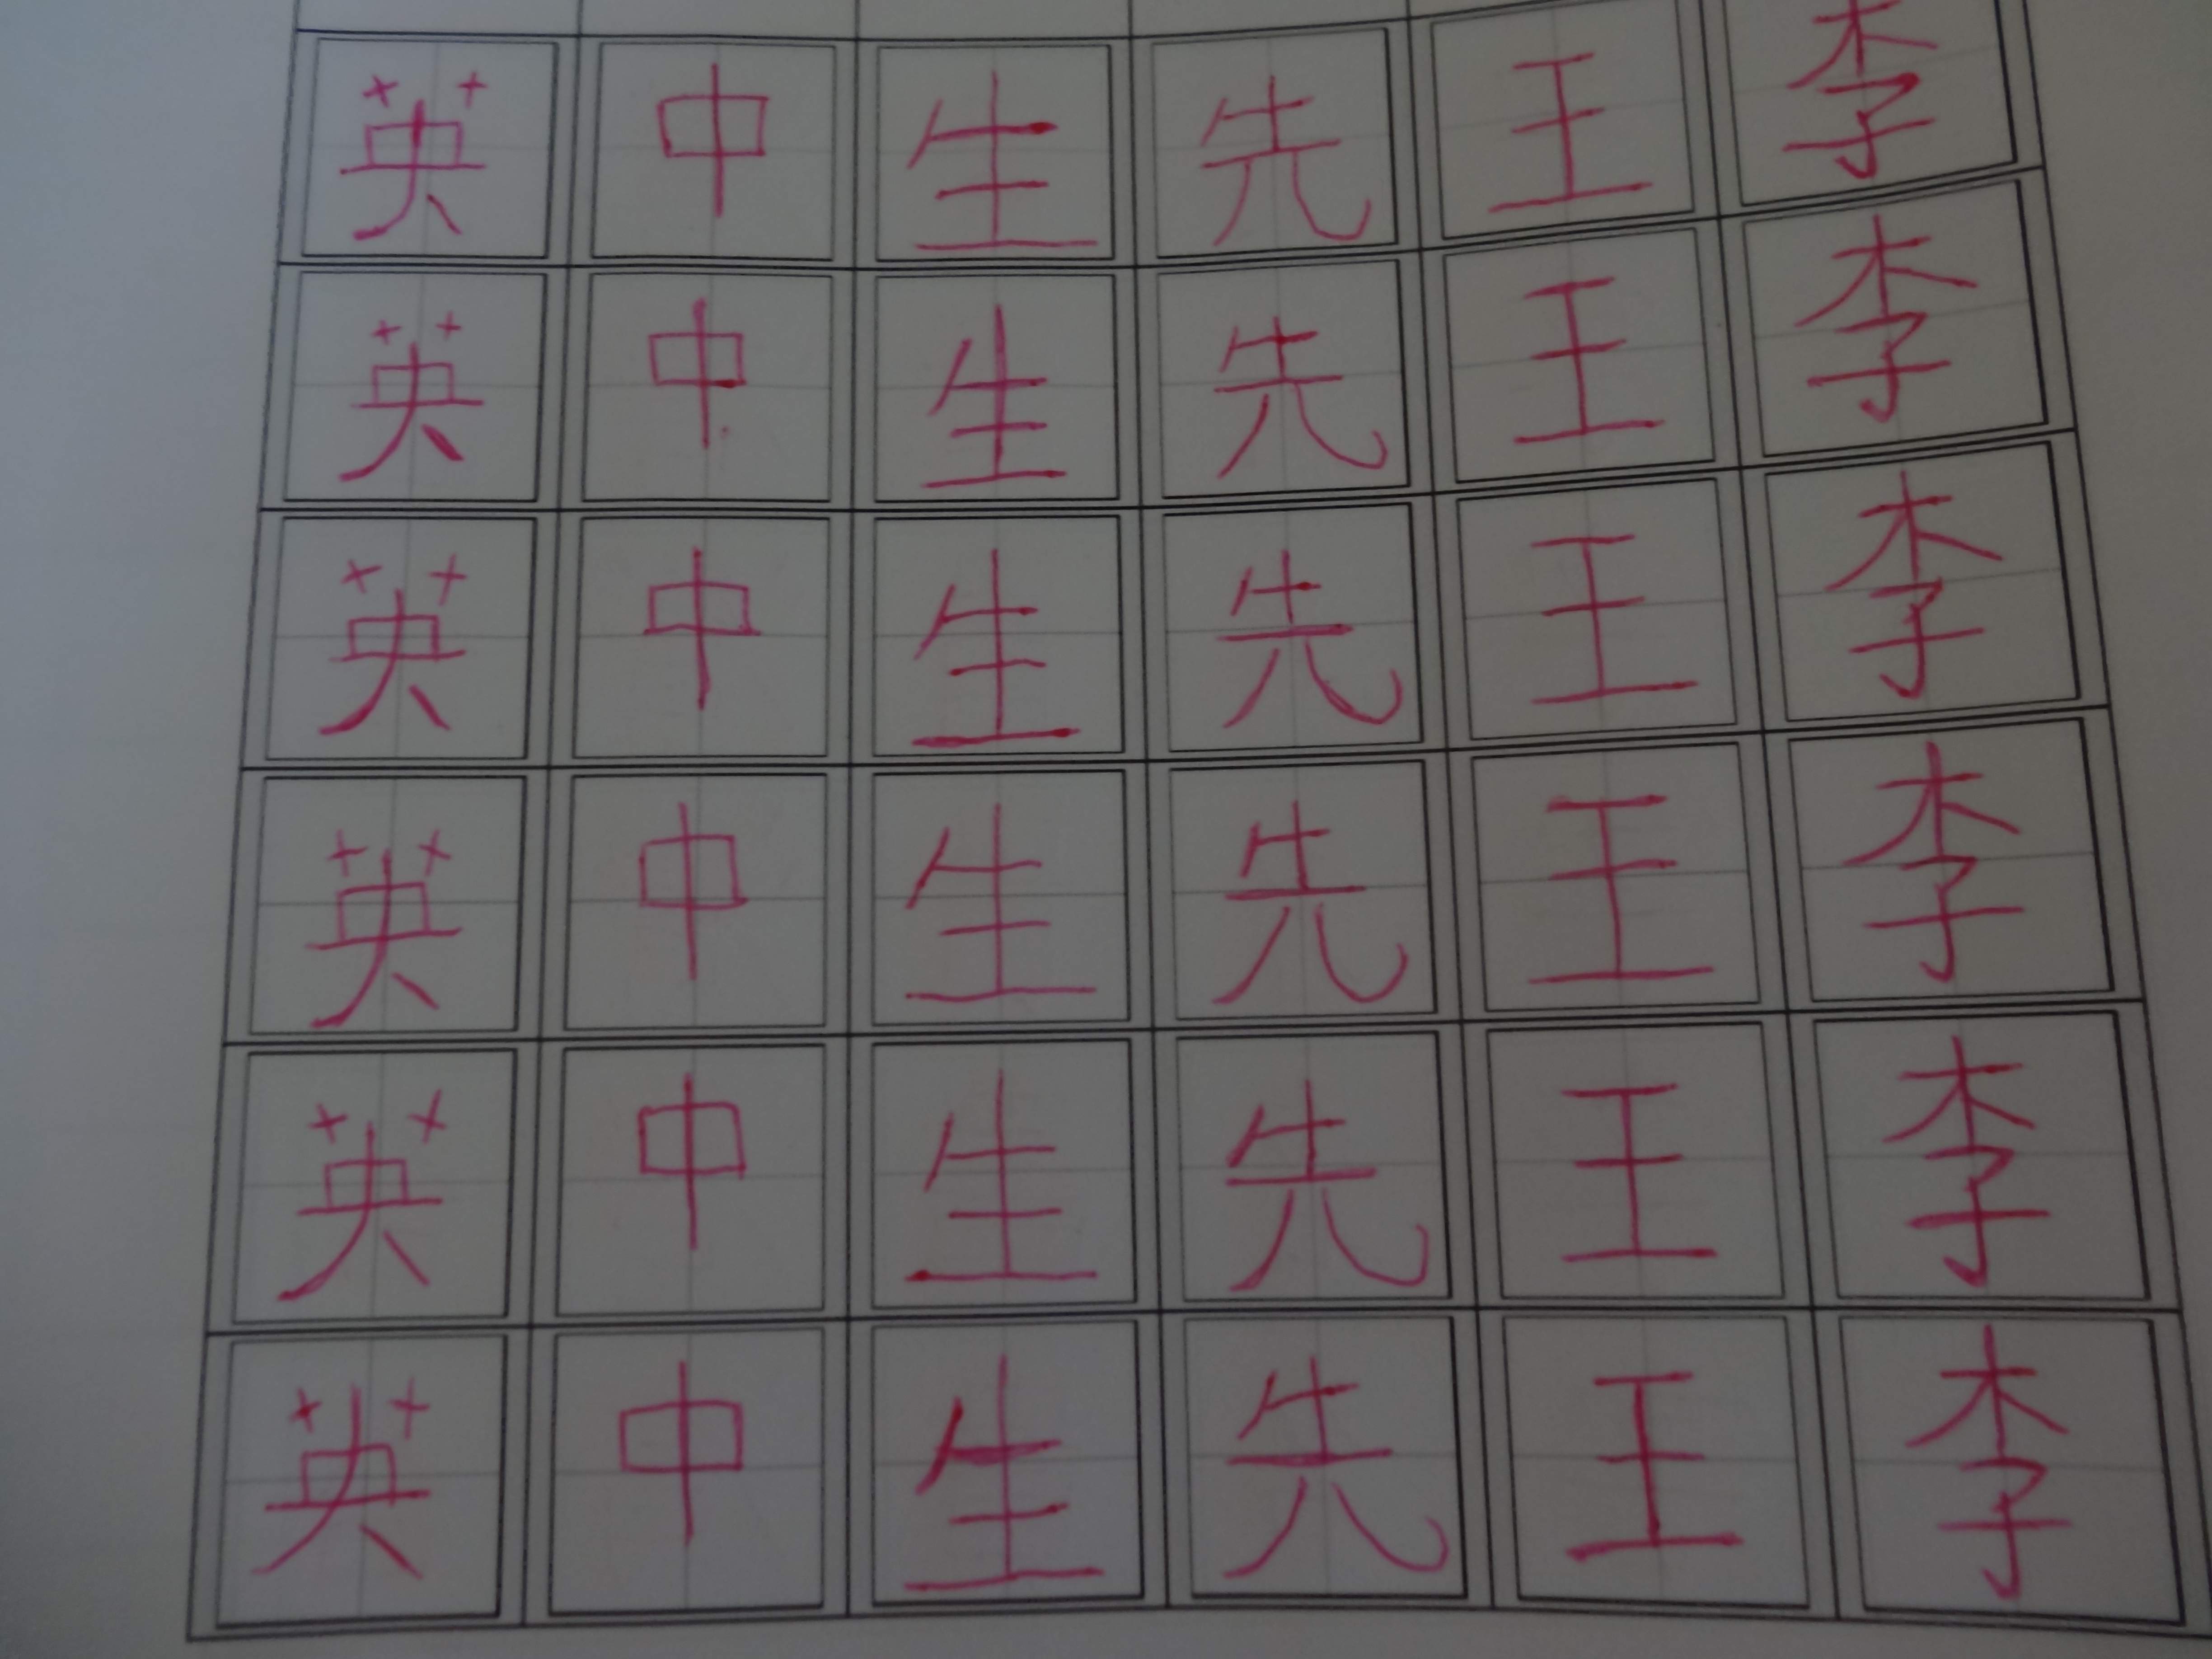 英 中 生 先 王 李
英 中 生 先 王 李
英 中 生 先 王 李
英 中 生 先 王 李
英 中 生 先 王 李
英 中 生 先 王 李